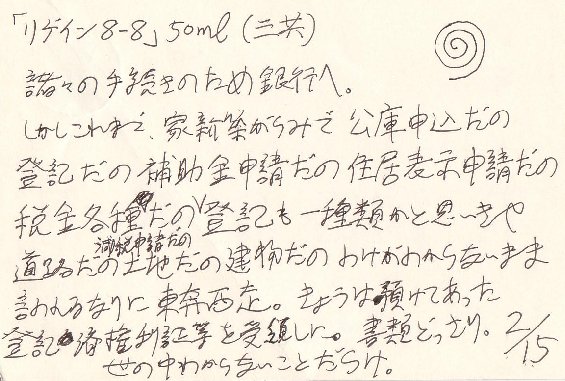 「リゲイン8-8」50ml(三共)
諸々の手続きのため銀行へ。
しかしこれまで、家新築がらみで公庫申込だの
登記だの補助金申請だの住居表示申請だの
税金各種だの登記も一種類かと思いきや
減税申請だの
道路だの土地だの建物だのわけがわからないまま
言われるなりに東奔西走。きょうは預けてあった
登記済権利証等を受領した。書類どっさり。2/15
世の中わからないことだらけ。